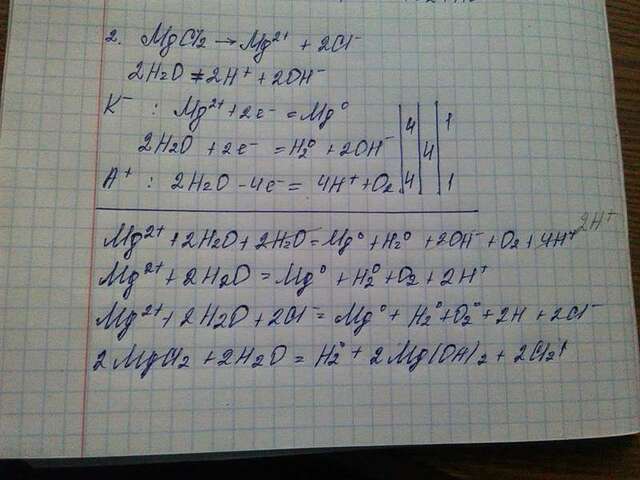 2. MgCl₂ → Mg²⁺ + 2Cl⁻
2H₂O ⇌ 2H⁺ + 2OH⁻
K⁻ : Mg²⁺ + 2e⁻ = Mg⁰ | 4 | | 1
2H₂O + 2e⁻ = H₂⁰ + 2OH⁻ | | 4 |
A⁺ : 2H₂O - 4e⁻ = 4H⁺ + O₂ | 4 | | 1
Mg²⁺ + 2H₂O + 2H₂O = Mg⁰ + H₂⁰ + 2OH⁻ + O₂ + 4H⁺ 2H⁺
Mg²⁺ + 2H₂O = Mg⁰ + H₂⁰ + O₂ + 2H⁺
Mg²⁺ + 2H₂O + 2Cl⁻ = Mg⁰ + H₂⁰ + O₂⁰ + 2H + 2Cl⁻
2MgCl₂ + 2H₂O = H₂⁰ + 2Mg(OH)₂ + 2Cl₂↑